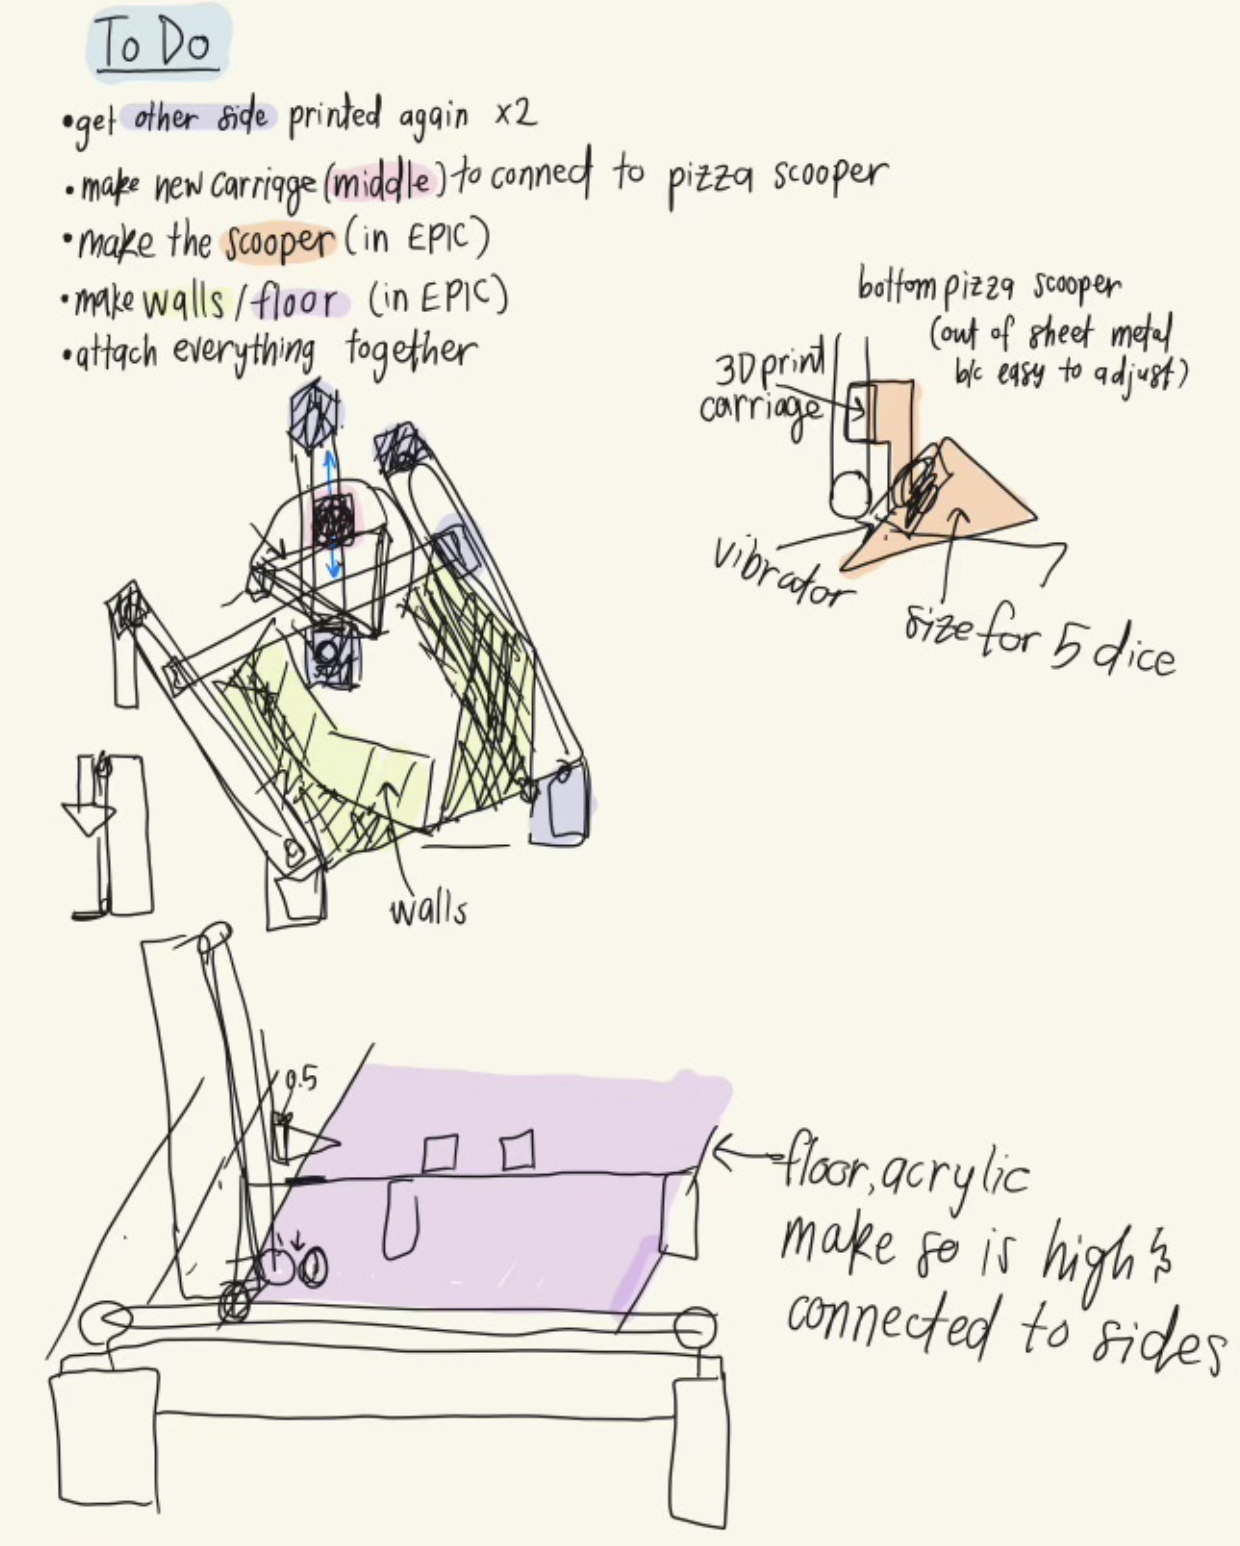 To Do
•get other side printed again x2
•make new carriage (middle) to connect to pizza scooper
•make the scooper (in EPIC)
•make walls/floor (in EPIC)
•attach everything together
bottom pizza scooper
(out of sheet metal
b/c easy to adjust)
3D print
carriage
vibrator
size for 5 dice
walls
0.5
floor, acrylic
make so is high &
connected to sides